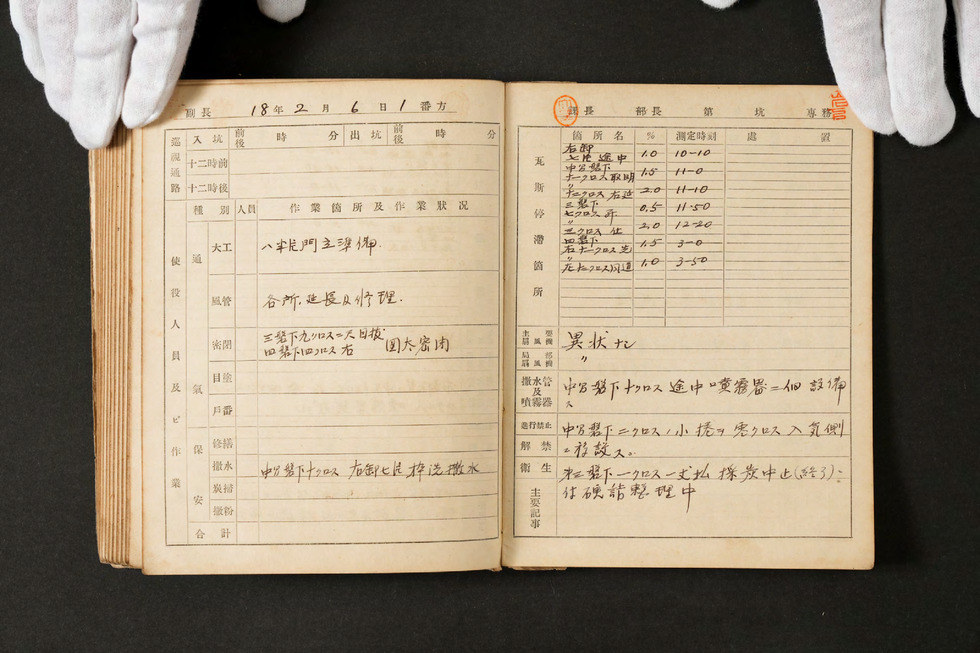 副長 18年2月6日1番方
巡視通路 入坑 前後 時 分 出坑 前後 時 分
十二時前
十二時後
使役人員及ビ作業
種別 人員 作業箇所及作業狀況
通氣
大工 八半片門立準備.
風管 各所.延長及修理.
密閉 三盤下九クロス二尺目抜
四盤下四クロス右 団太密閉
目塗
戸番
保安
修繕
撒水 中部盤下十クロス 右卸七片 枠洗撒水
炭掃
撒粉
合計
課長 部長 第 坑 専務
瓦斯停滯箇所
箇所名 % 測定時刻 處置
右卸
七片 途中 1.0 10-10
中部盤下
十一クロス 取明 1.5 11-0
〃
十二クロス 右延 2.0 11-10
三盤下
七クロス 昇 0.5 11-50
〃
三クロス 仕 2.0 12-20
四盤下
右十一クロス 先 1.5 3-0
〃
1.0 3-50
主要扇風機 異状ナシ
局部扇風機 〃
撒水管及噴霧器 中部盤下十クロス 途中 噴霧器二個 設備
ス
進行禁止 中部盤下二クロス,小捲ヲ零クロス入気側
解禁 ニ移設ス。
衛生 第三盤下一クロス一丈払 採炭中止(終了)ニ
主要記事 付 硬詰整理中